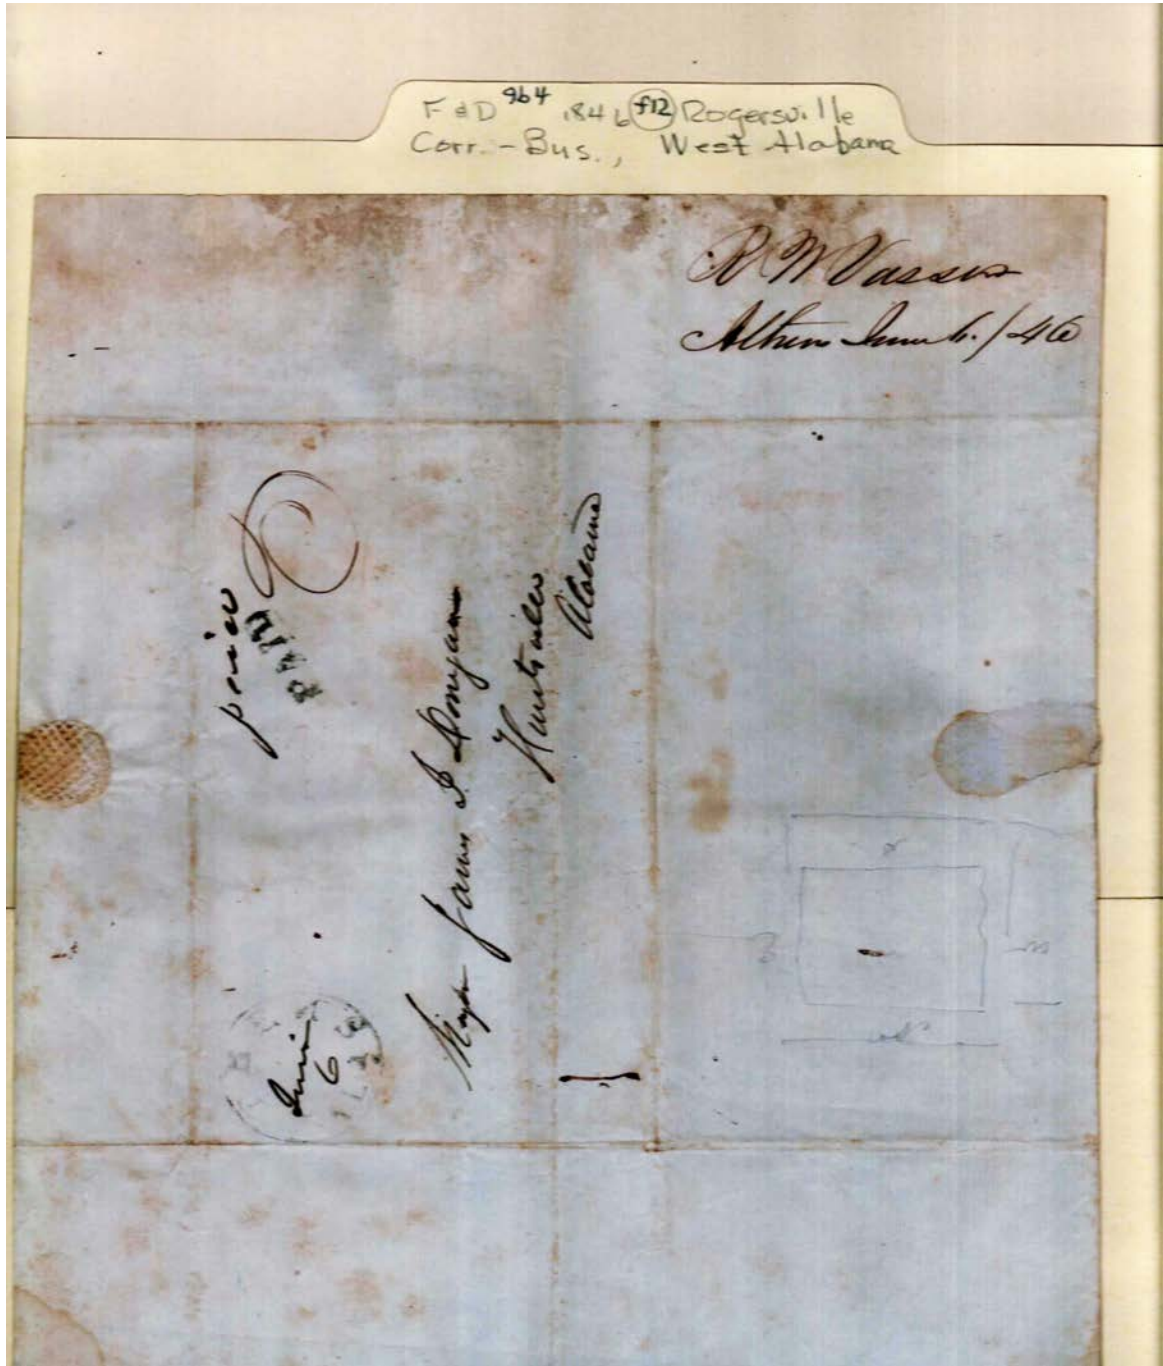 F & D 964 1846 f12 Rogersville
Corr.-Bus., West Alabama
R W Vasser
Athens June 6./46
paid
PAID
June
6
Major James J Donegan
Huntsville
Alabama